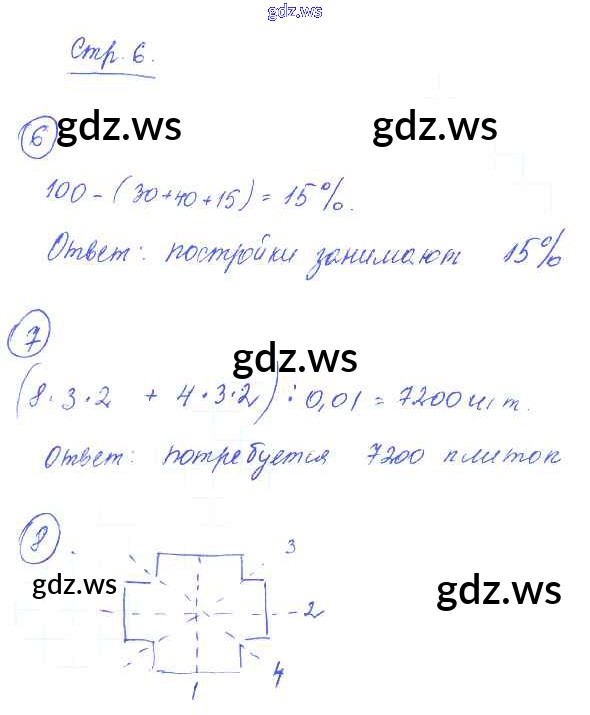 gdz.ws
Стр. 6.
6 gdz.ws gdz.ws
100 - (30+40+15) = 15%.
Ответ: постройки занимают 15%
7
gdz.ws
(8·3·2 + 4·3·2) : 0,01 = 7200 шт.
Ответ: потребуется 7200 плиток
8.
3
gdz.ws gdz.ws
2
4
1